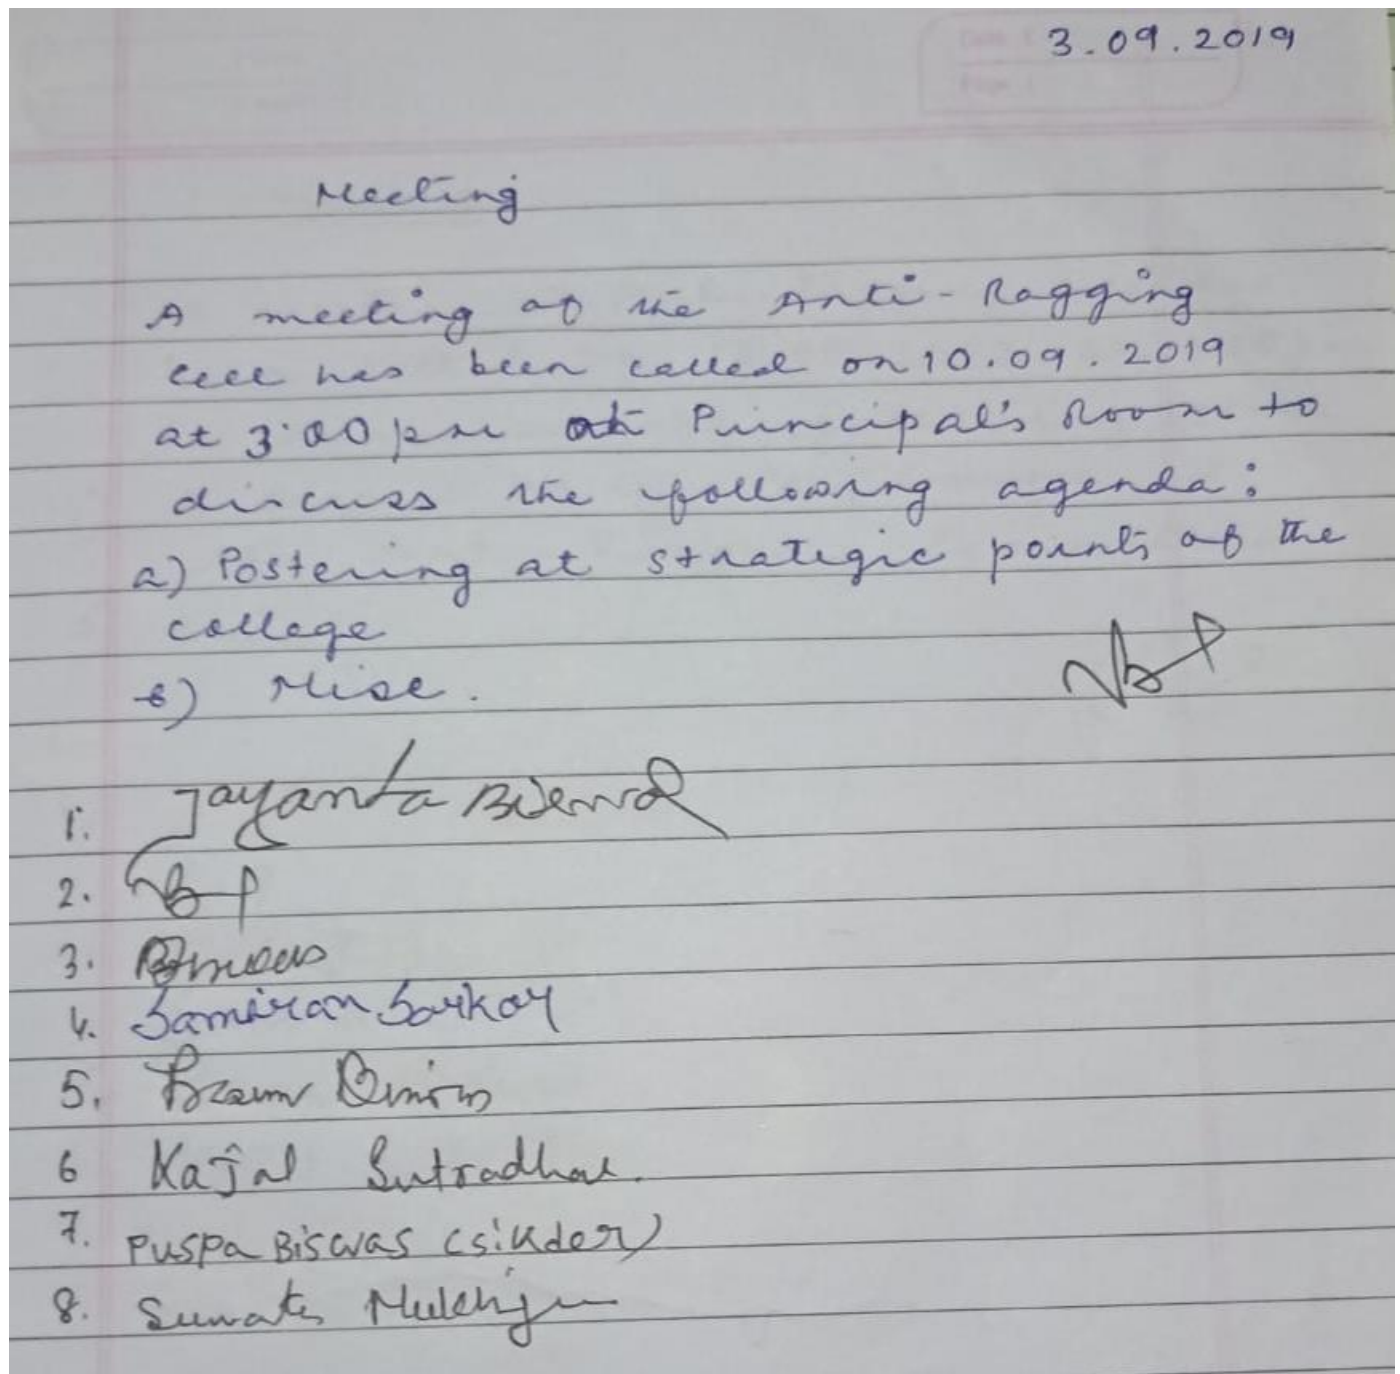 3.09.2019
Meeting
A meeting of the Anti-Ragging
cell has been called on 10.09.2019
at 3:00 pm at Principal's Room to
discuss the following agenda:
a) Postering at strategic points of the
college
b) Misc.
1. Jayanta
2.
3.
4. Samiran Sarkar
5.
6 Kajal Sutradhar.
7. PUSPA BISWAS (Sikder)
8.